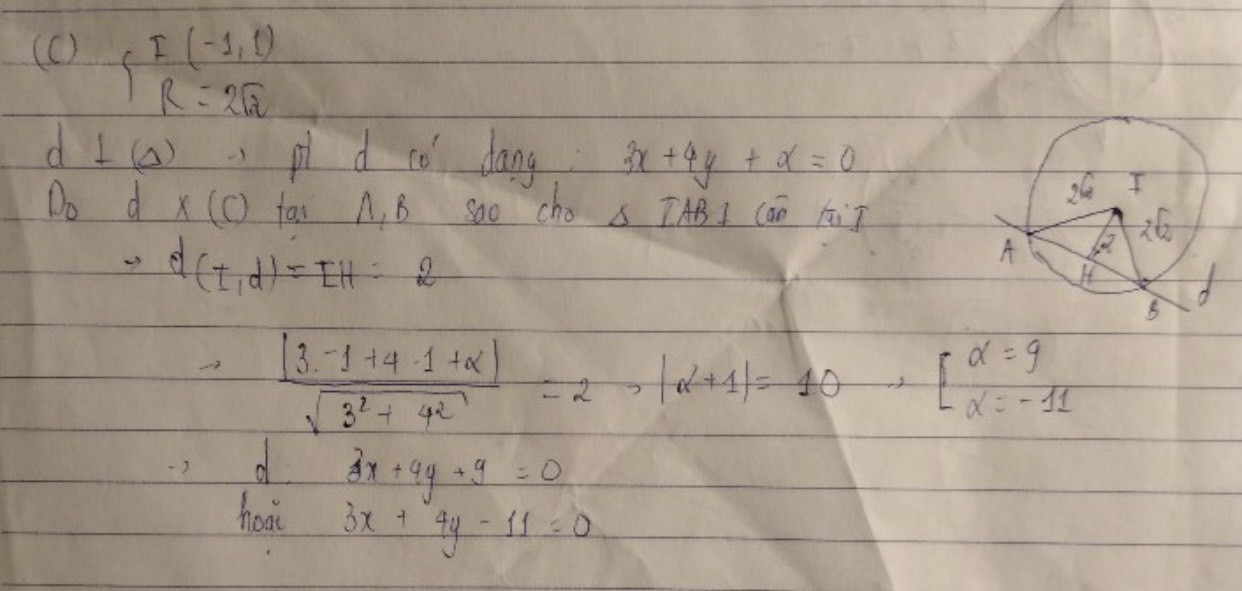 (C) { I (-1, 1)
R = 2√2
d ⊥ (Δ) → pt d có dạng : 3x + 4y + α = 0
Do d x (C) tại A, B sao cho Δ IAB ⊥ cân tại I
→ d(I, d) = IH = 2
→ |3. -1 + 4 . 1 + α| / √(3² + 4²) = 2 → |α + 1| = 10 → [ α = 9
α = -11
→ d : 3x + 4y + 9 = 0
hoặc 3x + 4y - 11 = 0
2√2 I
2√2
A H 2
B d